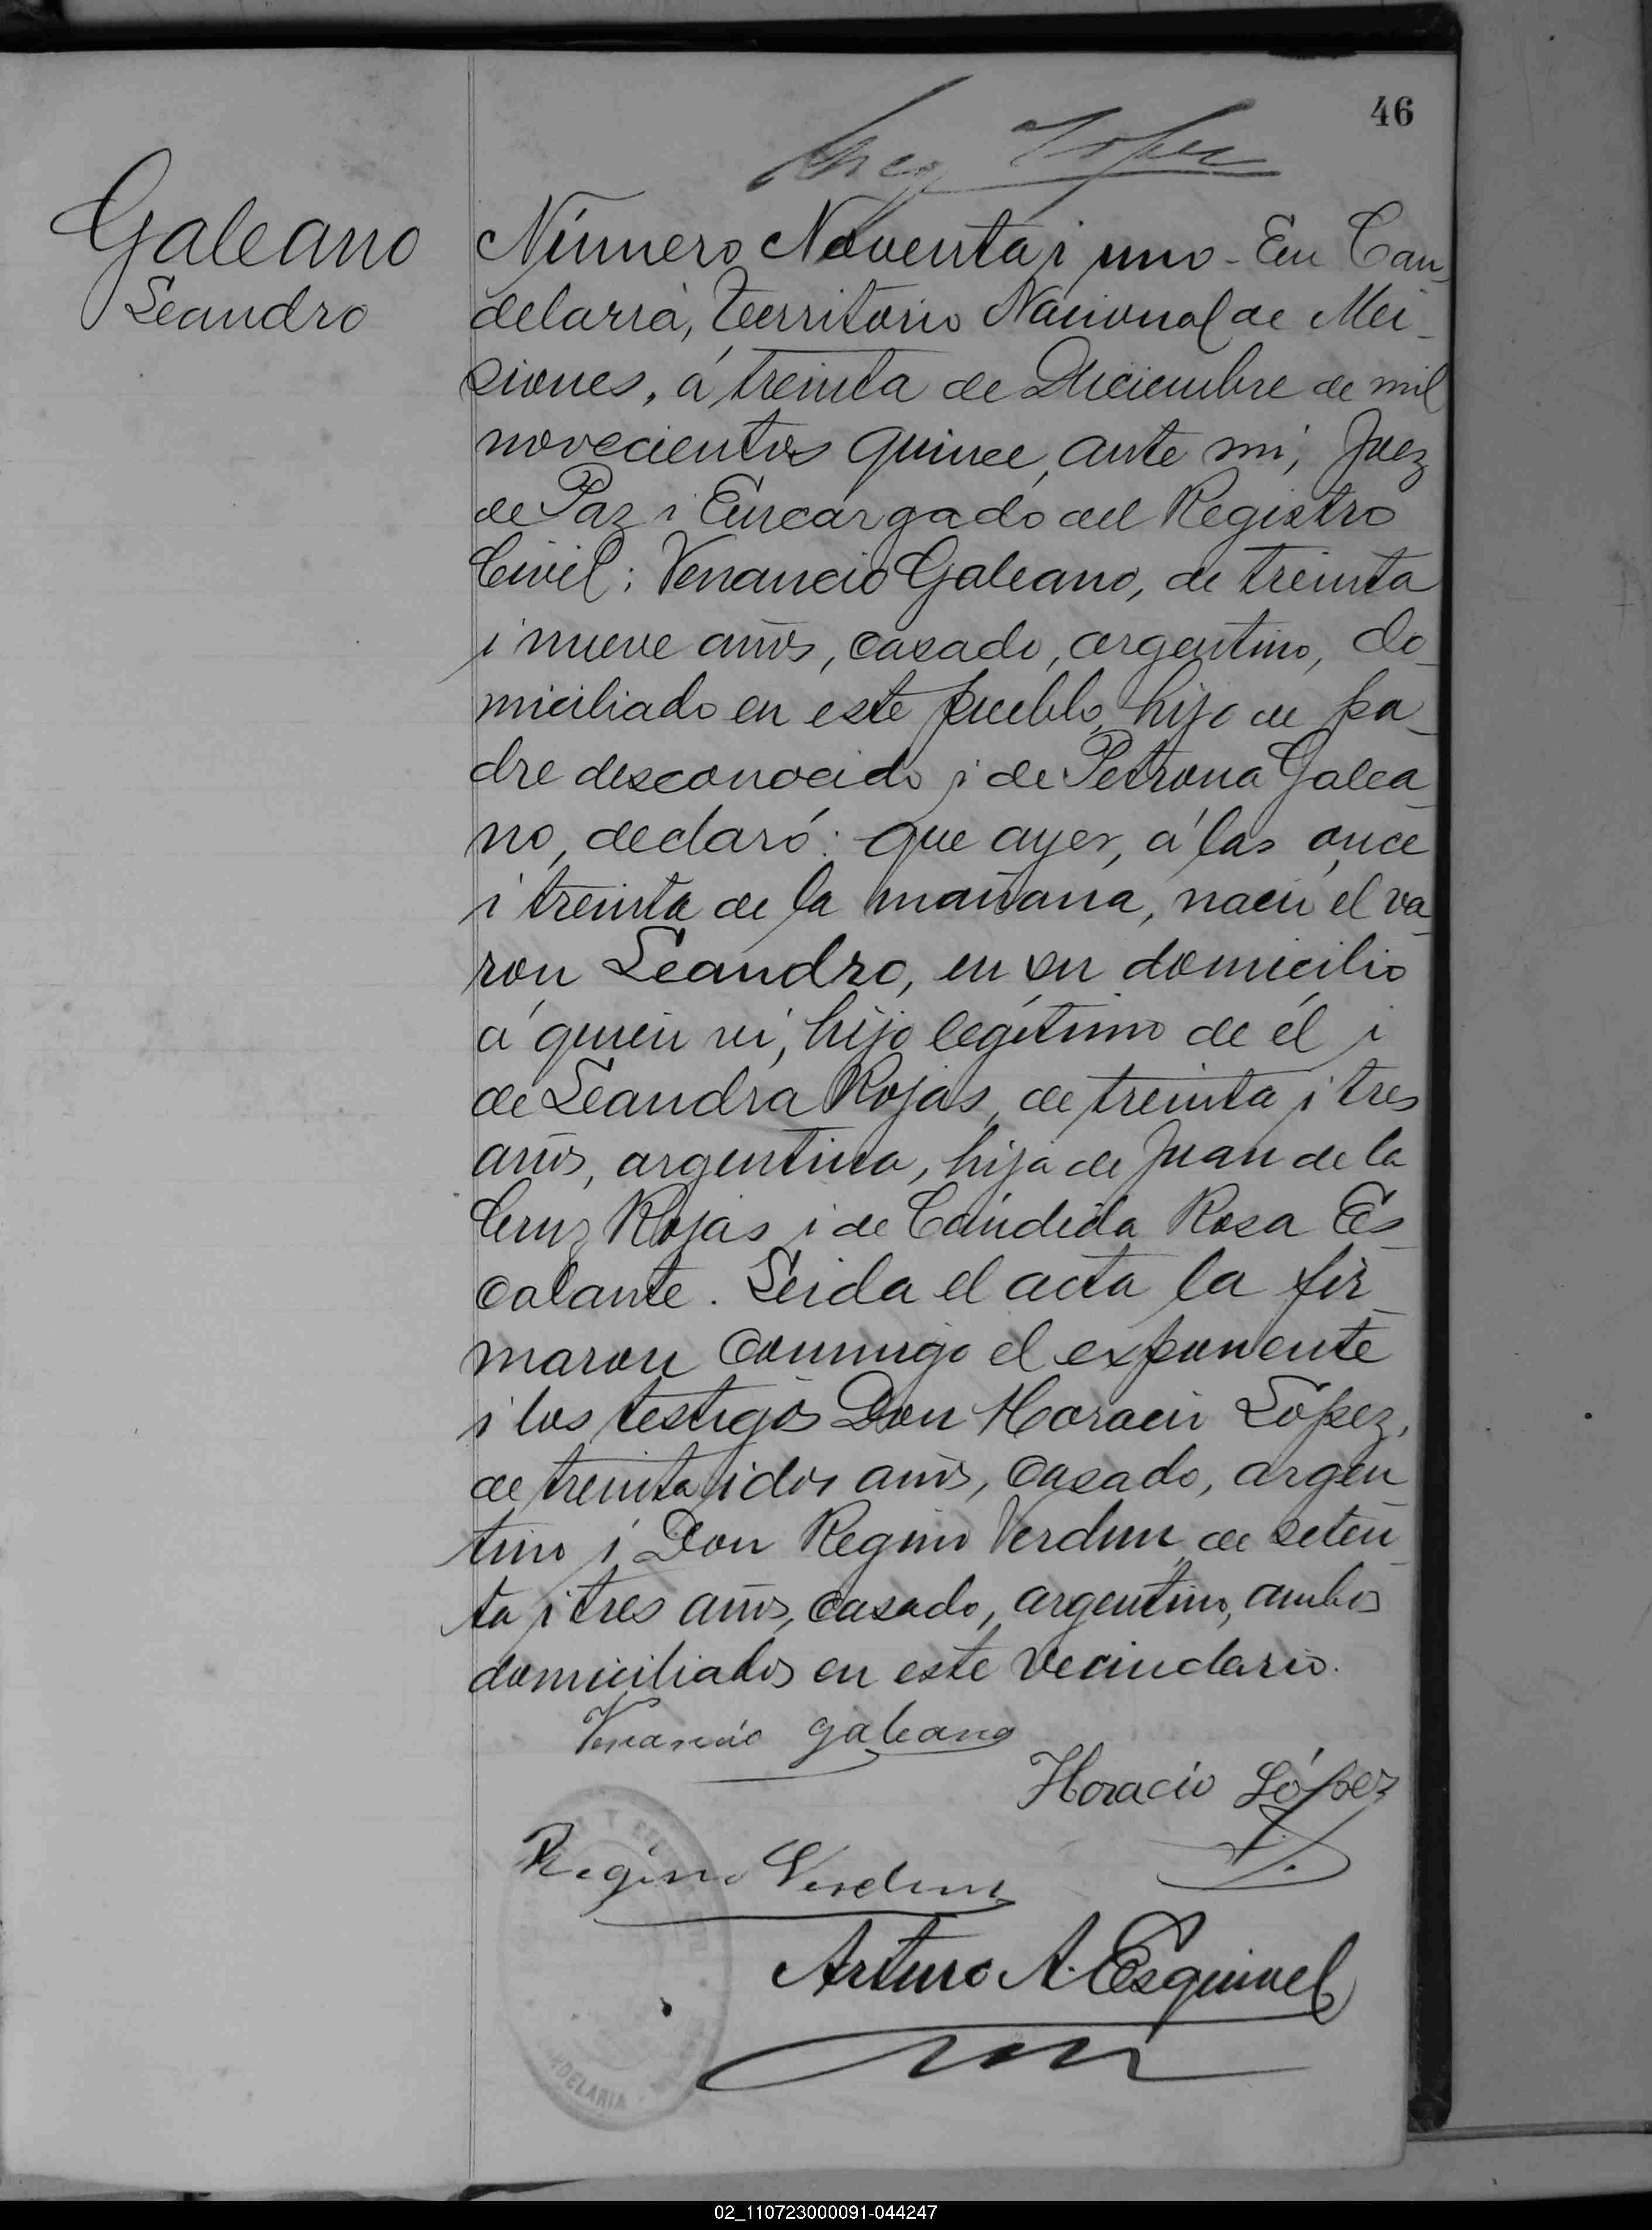 46
Lopez
Galeano
Leandro
Número Noventa i uno - En Can_
delaria, Territorio Nacional de Mi_
siones, á treinta de Diciembre de mil
novecientos quince, ante mi, Juez
de Paz i Encargado del Registro
Civil; Venancio Galeano, de treinta
i nueve años, casado, argentino, do_
miciliado en este pueblo, hijo de pa_
dre desconocido i de Petrona Galea_
no, declaró: que ayer, á las once
i treinta de la mañana, nació el va_
ron Leandro, en su domicilio
á quien vi, hijo legítimo de él i
de Leandra Rojas, de treinta i tres
años, argentina, hija de Juan de la
Cruz Rojas i de Cándida Rosa Es_
calante. Leida el acta la fir_
maron conmigo el exponente
i los testigos Don Horacio López,
de treinta i dos años, casado, argen_
tino i Don Regino Verdun, de seten_
ta i tres años, casado, argentino, ambos
domiciliados en este vecindario.
Venancio galeano
Horacio López
Regino Verdun
Arturo A. Esquivel
02_110723000091-044247